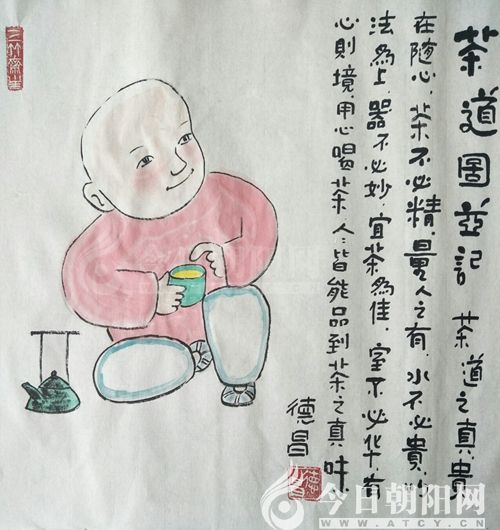 茶道圖並記 茶道之真貴
在随心，茶不必精，量人之有，水不必貴，
法為上，器不必妙，宜茶為佳，室不必华，有
心則境，用心喝茶，人人皆能品到茶之真味
德昌
今日朝阳网
WWW.ATCY.CN